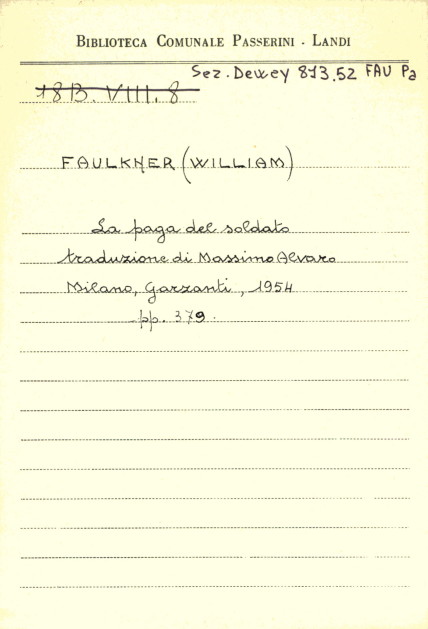 BIBLIOTECA COMUNALE PASSERINI - LANDI
Sez. Dewey 813.52 FAU Pa
18B.VIII.8
FAULKNER (WILLIAM)
La paga del soldato
traduzione di Massimo Alvaro
Milano, Garzanti, 1954
pp. 379.